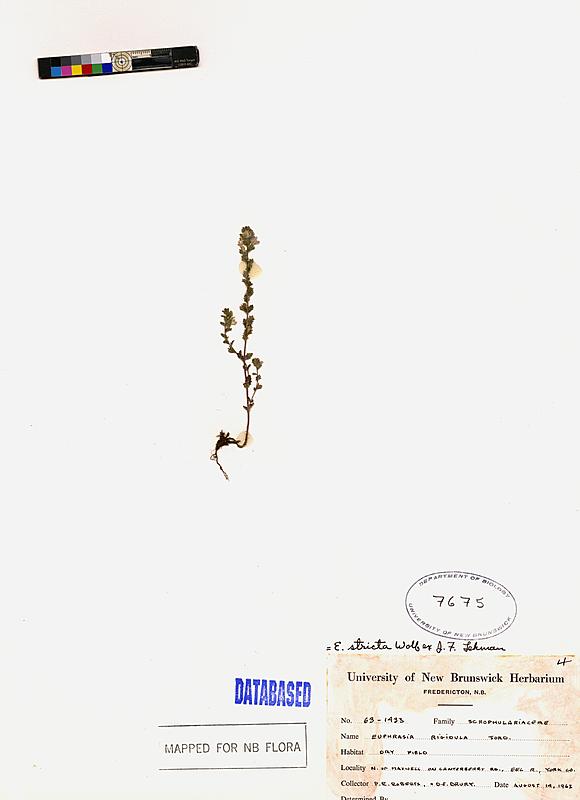 DEPARTMENT OF BIOLOGY
7675
UNIVERSITY OF NEW BRUNSWICK
= E. stricta Wolf ex J. F. Lehman
4
University of New Brunswick Herbarium
FREDERICTON, N.B.
No. 63-1433 Family SCROPHULARIACEAE
Name EUPHRASIA RIGIDULA JORD.
Habitat DRY FIELD
Locality N. OF MAXWELL ON CANTERBERRY RD., EEL R., YORK CO.
Collector P.R. ROBERTS, + D.E. DRURY. Date AUGUST 19, 1963
Determined By
DATABASED
MAPPED FOR NB FLORA